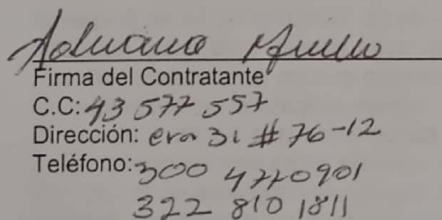 Adriana Murillo
Firma del Contratante
C.C: 43 577 557
Dirección: cra 31 # 76-12
Teléfono: 300 4720901
322 810 1811